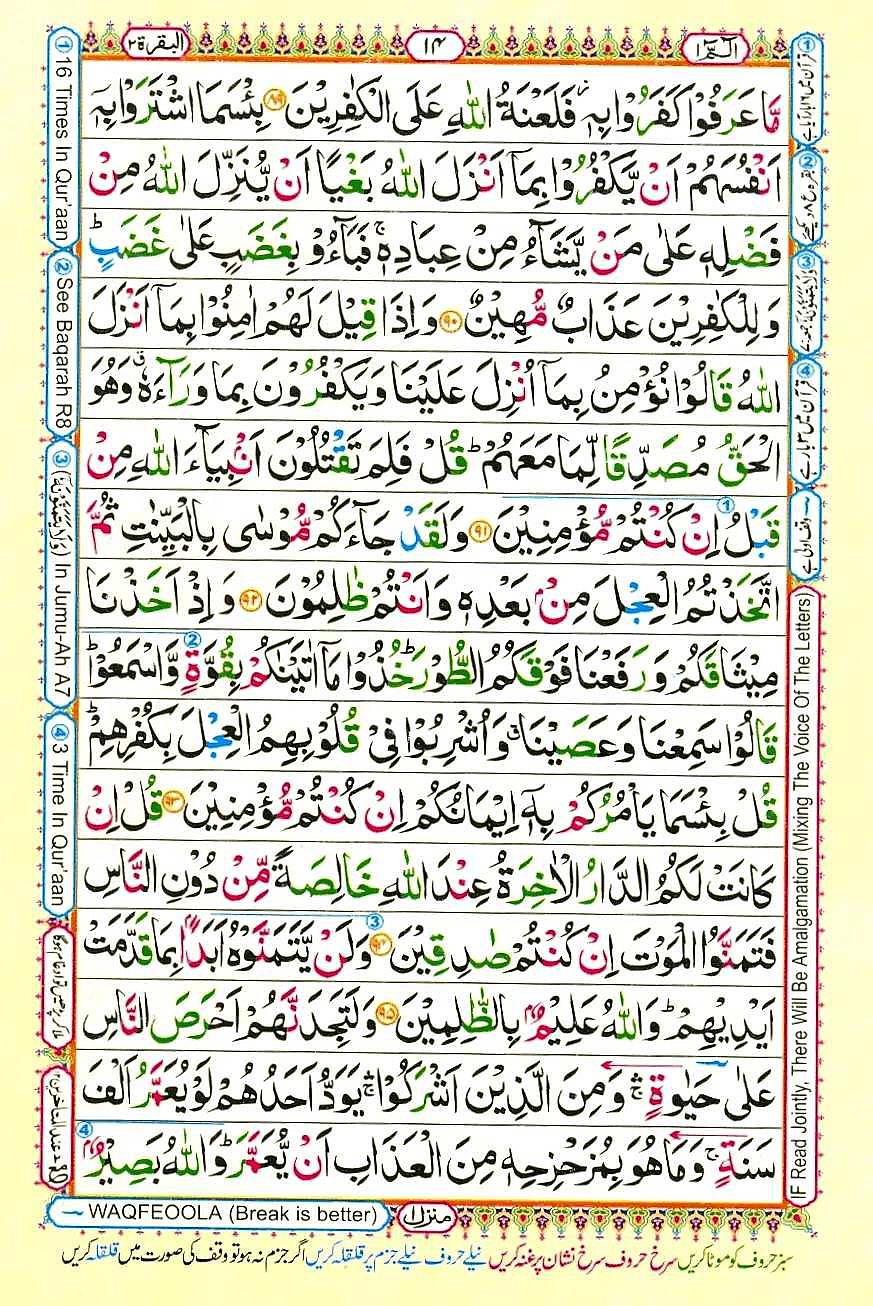 الٓمّٓ ١
١٤
البقرة ٢
مَّا عَرَفُوْا كَفَرُوْا بِهٖ ؗ فَلَعْنَةُ اللّٰهِ عَلَى الْكٰفِرِيْنَ ﴿٨٩﴾ بِئْسَمَا اشْتَرَوْا بِهٖۤ
اَنْفُسَهُمْ اَنْ يَّكْفُرُوْا بِمَاۤ اَنْزَلَ اللّٰهُ بَغْيًا اَنْ يُّنَزِّلَ اللّٰهُ مِنْ
فَضْلِهٖ عَلٰى مَنْ يَّشَآءُ مِنْ عِبَادِهٖ ۚ فَبَآءُوْ بِغَضَبٍ عَلٰى غَضَبٍ ؕ
وَلِلْكٰفِرِيْنَ عَذَابٌ مُّهِيْنٌ ﴿٩٠﴾ وَاِذَا قِيْلَ لَهُمْ اٰمِنُوْا بِمَاۤ اَنْزَلَ
اللّٰهُ قَالُوْا نُؤْمِنُ بِمَاۤ اُنْزِلَ عَلَيْنَا وَيَكْفُرُوْنَ بِمَا وَرَآءَهٗ ۗ وَهُوَ
الْحَقُّ مُصَدِّقًا لِّمَا مَعَهُمْ ؕ قُلْ فَلِمَ تَقْتُلُوْنَ اَنْۢبِيَآءَ اللّٰهِ مِنْ
قَبْلُ اِنْ كُنْتُمْ مُّؤْمِنِيْنَ ﴿٩١﴾ وَلَقَدْ جَآءَكُمْ مُّوْسٰى بِالْبَيِّنٰتِ ثُمَّ
اتَّخَذْتُمُ الْعِجْلَ مِنْۢ بَعْدِهٖ وَاَنْتُمْ ظٰلِمُوْنَ ﴿٩٢﴾ وَاِذْ اَخَذْنَا
مِيْثَاقَكُمْ وَرَفَعْنَا فَوْقَكُمُ الطُّوْرَ ؕ خُذُوْا مَاۤ اٰتَيْنٰكُمْ بِقُوَّةٍ وَّاسْمَعُوْا ؕ
قَالُوْا سَمِعْنَا وَعَصَيْنَا ۗ وَاُشْرِبُوْا فِيْ قُلُوْبِهِمُ الْعِجْلَ بِكُفْرِهِمْ ؕ
قُلْ بِئْسَمَا يَاْمُرُكُمْ بِهٖۤ اِيْمَانُكُمْ اِنْ كُنْتُمْ مُّؤْمِنِيْنَ ﴿٩٣﴾ قُلْ اِنْ
كَانَتْ لَكُمُ الدَّارُ الْاٰخِرَةُ عِنْدَ اللّٰهِ خَالِصَةً مِّنْ دُوْنِ النَّاسِ
فَتَمَنَّوُا الْمَوْتَ اِنْ كُنْتُمْ صٰدِقِيْنَ ﴿٩٤﴾ وَلَنْ يَّتَمَنَّوْهُ اَبَدًۢا بِمَا قَدَّمَتْ
اَيْدِيْهِمْ ؕ وَاللّٰهُ عَلِيْمٌۢ بِالظّٰلِمِيْنَ ﴿٩٥﴾ وَلَتَجِدَنَّهُمْ اَحْرَصَ النَّاسِ
عَلٰى حَيٰوةٍ ۛۚ وَمِنَ الَّذِيْنَ اَشْرَكُوْا ۛۚ يَوَدُّ اَحَدُهُمْ لَوْ يُعَمَّرُ اَلْفَ
سَنَةٍ ۚ وَمَا هُوَ بِمُزَحْزِحِهٖ مِنَ الْعَذَابِ اَنْ يُّعَمَّرَ ؕ وَاللّٰهُ بَصِيْرٌۢ
① 16 Times In Qur'aan
② See Baqarah R8
③ (وَلَا يَتَمَنَّوْنَهٗٓ) In Jumu-Ah A7
④ 3 Time In Qur'aan
IF Read Jointly, There Will Be Amalgamation (Mixing The Voice Of The Letters)
WAQFEOOLA (Break is better)
منزل ١
سبز حروف کو موٹا کریں سرخ حروف سرخ نشان پر غنہ کریں نیلے حروف نیلے جزم پر قلقلہ کریں اگر جزم نہ ہو تو وقف کی صورت میں قلقلہ کریں